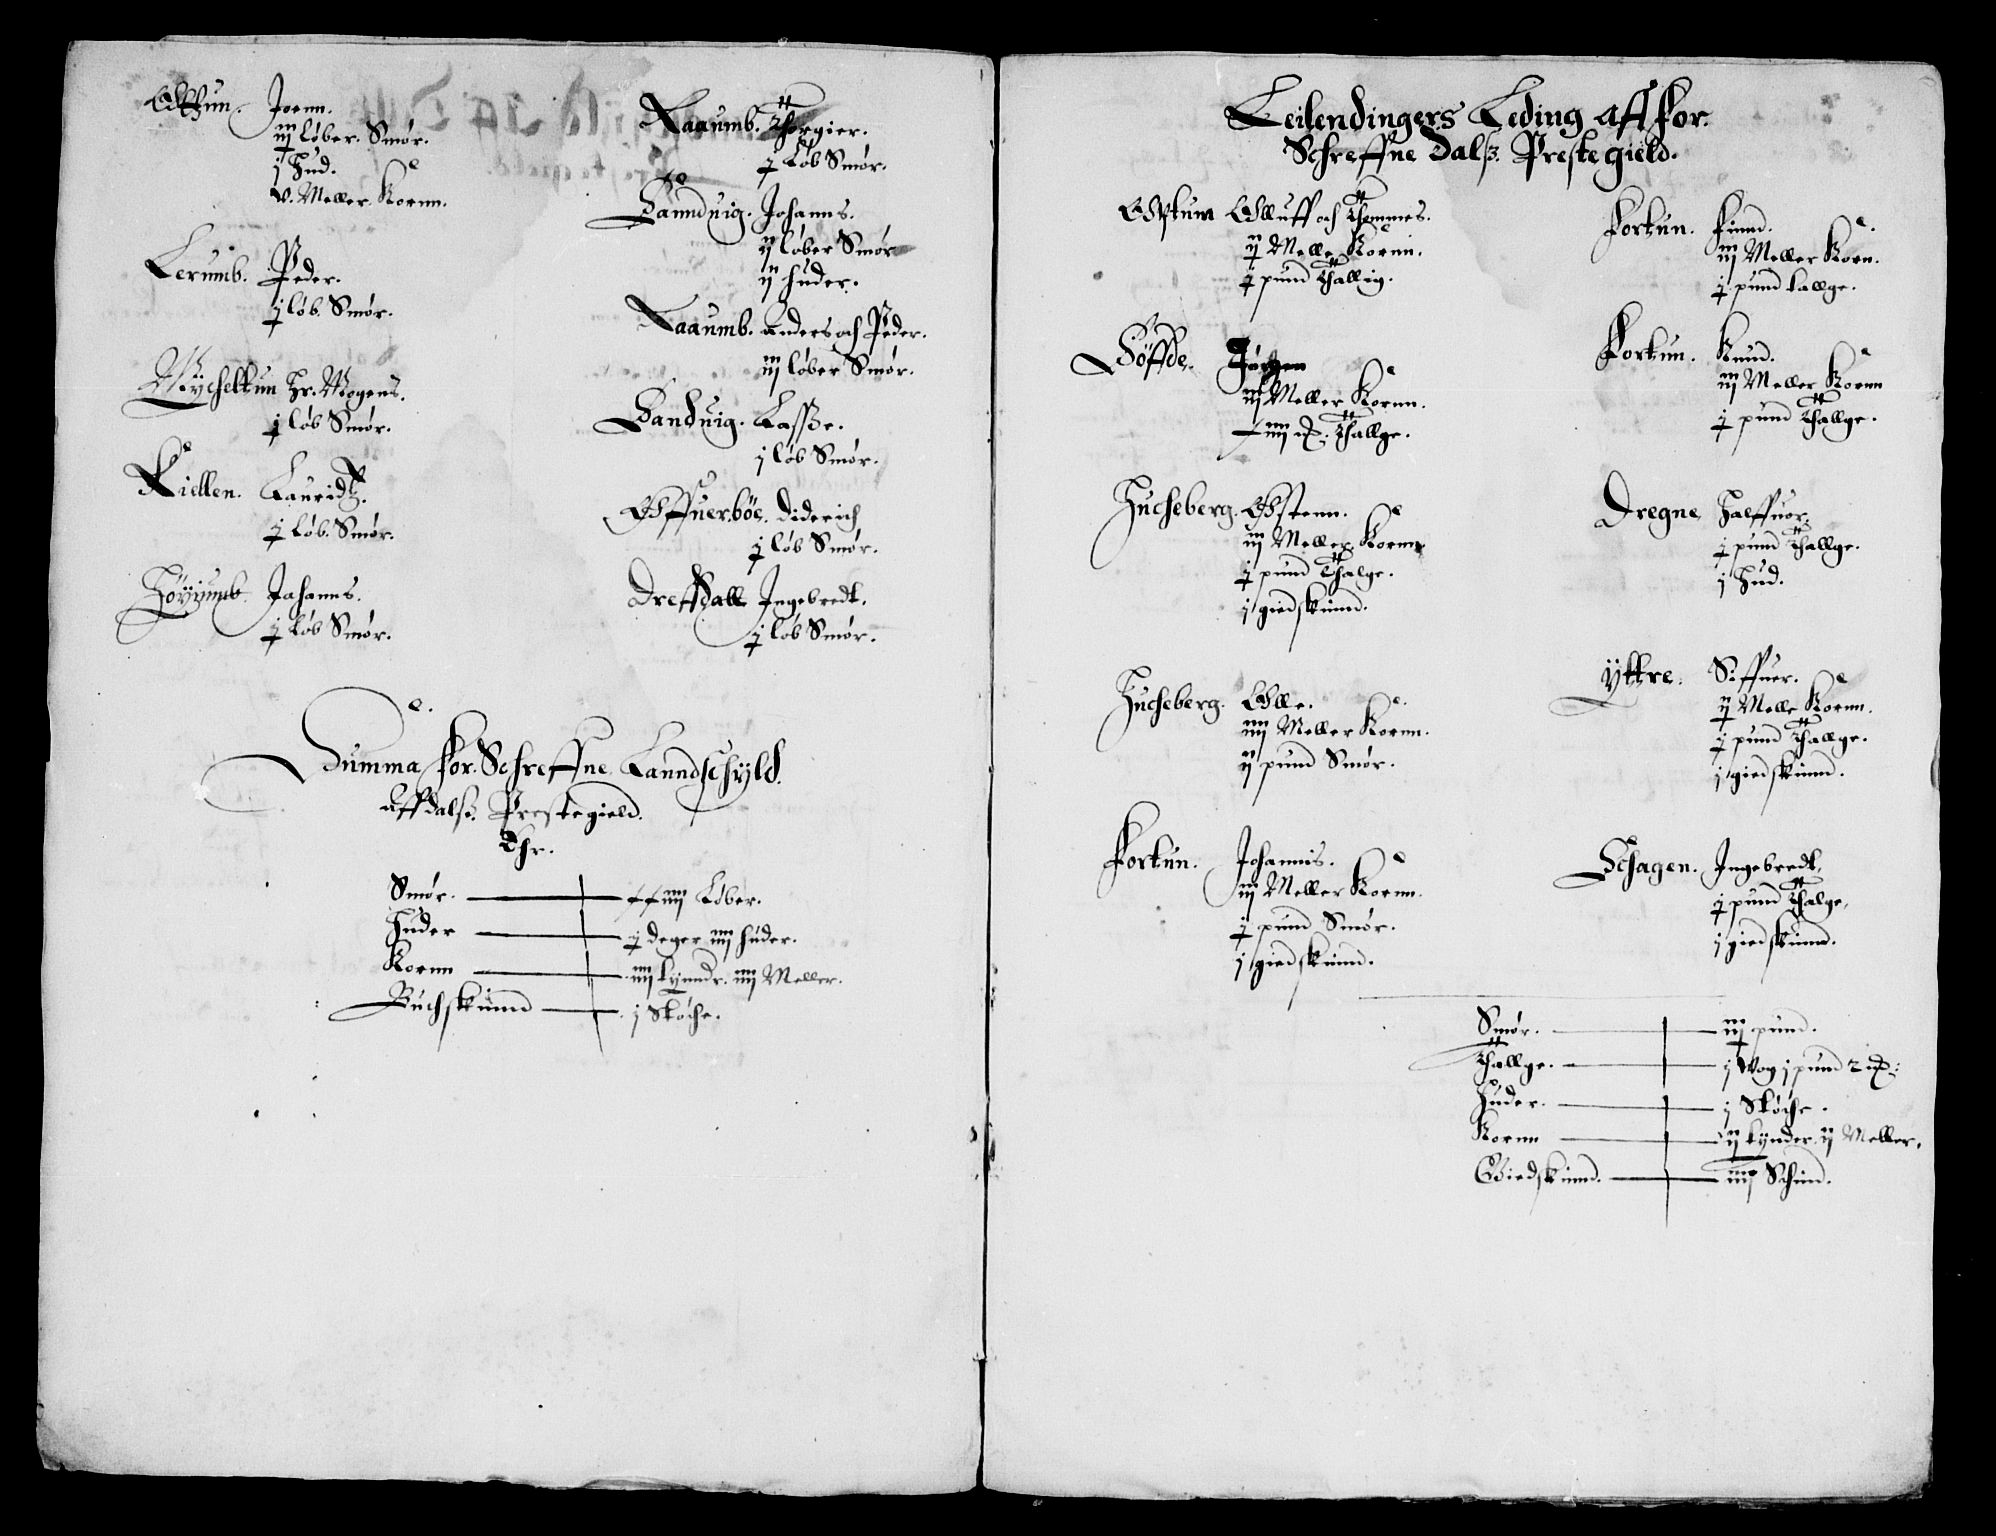 Joenn.
iij løber. Smør.
j Hud.
v. Meller. Kornn.
Lerumb. Peder.
j løb. Smør.
Mycheltun Hr. Mogens.
j løb Smør.
Kiellen. Lauridtz.
j Løb. Smør.
Høyiumb. Johanns.
j Løb Smør.
Raaumb. Thorgier.
j Løb Smør.
Sanduig. Johanns.
ij løber Smør
ij huder.
Raaumb. Anders och Peder.
iij løber Smør.
Sanduig. Lasse.
j løb Smør.
Offuerbøe. Diderich
j løb Smør.
Dreffdall Ingebredt.
j løb Smør.
Summa for. Schreffne Lanndschyld.
Aff Dalsz. Prestegield.
Ehr.
Smør. xxiiij Løber.
Huder j deger iiij huder.
Kornn iiij tynndr. iiij Meller.
Buchskiinnd j Støche.
Leilendingers Leding Aff for.
Schreffne Dalsz. Prestegield.
Optun Olluff och Thommes.
ij Melle Kornn.
j pund Thallig.
Høffde. Jørgen
iij Meller Kornn.
Thallge.
Hucheberg. Ostenn.
iij Meller Kornn.
j pund Thalge.
j giedskiind.
Hucheberg. Olle.
iiij Meller Kornn.
ij pund Smør.
Fortun. Johannis.
iij Meller Kornn.
j pund Smør.
j giedskiind.
Fortun. Finnd.
iij Meller Korn.
j pund tallge.
Fortun. Knud.
iij Meller Kornn
j pund Thallge.
Dregne Halffuor.
j pund Thallge.
j Hud.
Yttre. Siffuer.
ij Melle Kornn.
j pund Thallge.
j giedskiind.
Schagen. Ingebredt.
j pund Thalge.
j giedskiind.
Smør. iij pund.
Thallge. j Wog j pund 2
Huder. j Støche.
Kornn ij tynder. ij Meller.
Giedskiind. iiij Schind.